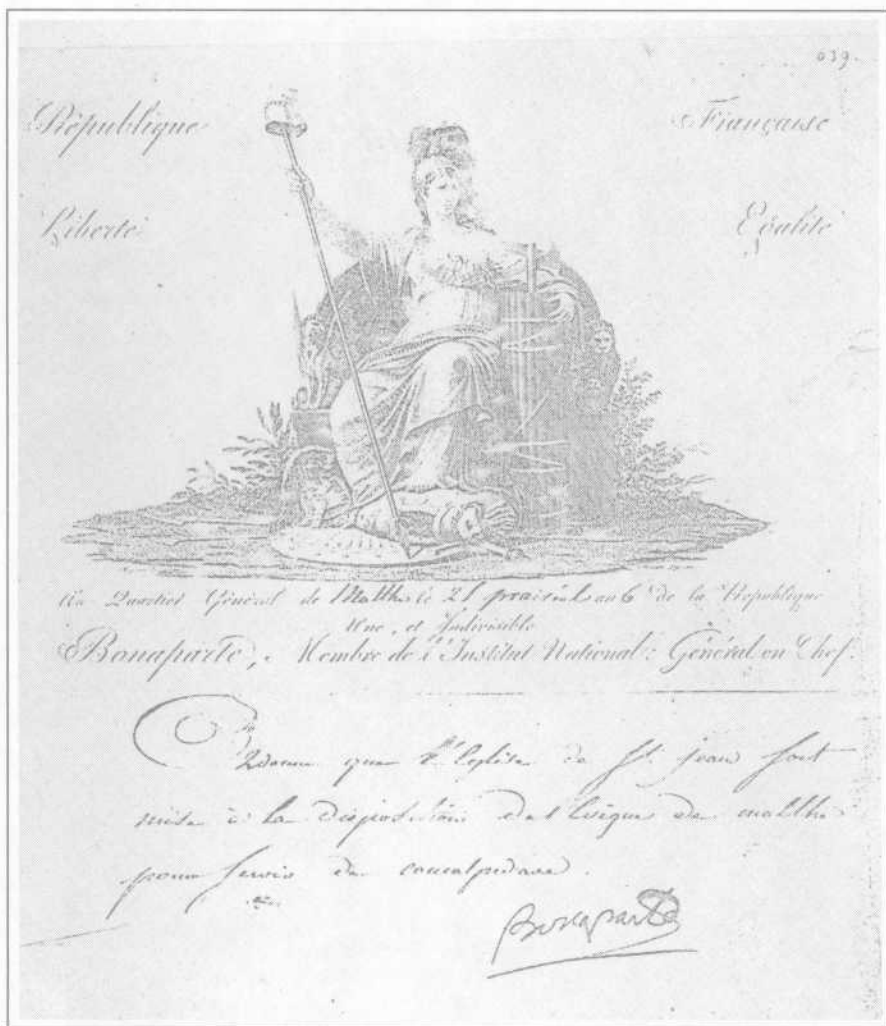 039.
République Française
Liberté Egalité
Au Quartier Général de Malthe le 25 prairial an 6 de la République
Une, et Indivisible
Bonaparte, Membre de l'Institut National; Général en Chef.
Ordonne que l'Eglise de St. jean soit
mise à la disposition de l'Evêque de malthe
pour servir de
Bonaparte